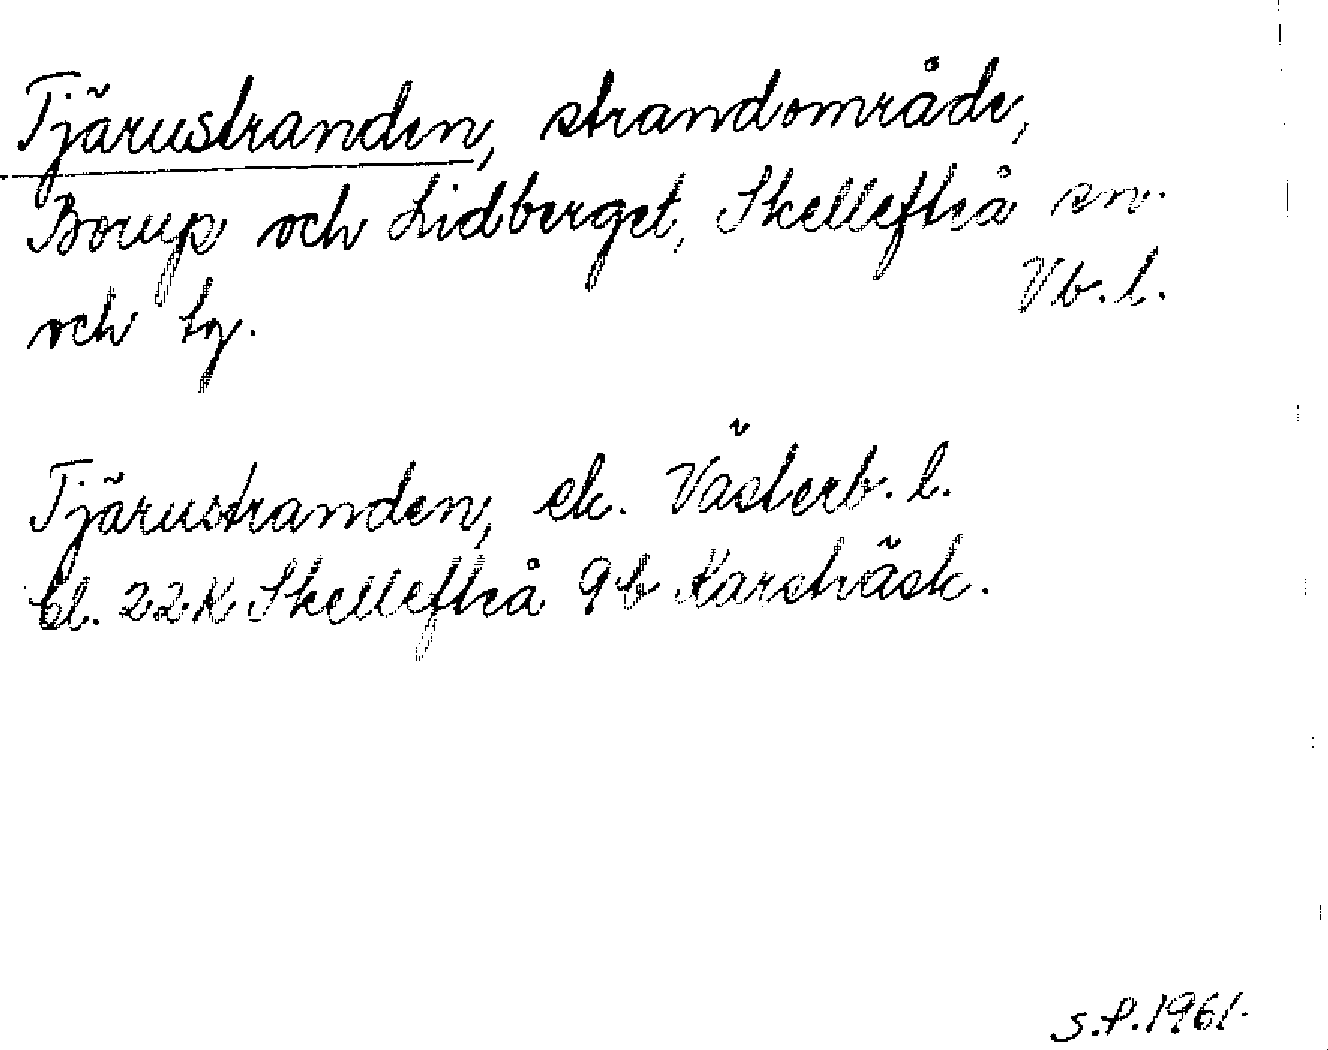 Tjärustranden, strandområde,
Borup och Lidberget, Skellefteå sn.
och lg. Vb. l.
Tjärustranden, ek. Västerb. l.
bl. 22K Skellefteå 9b Karsträsk.
S.P. 1961.